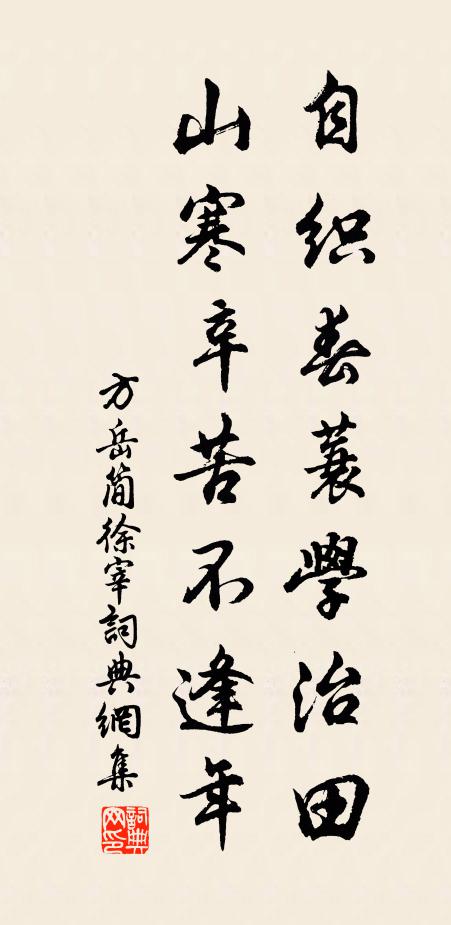 自織春蓑學治田
山寒辛苦不逢年
方岳簡徐宰詞典網集
詞典网印